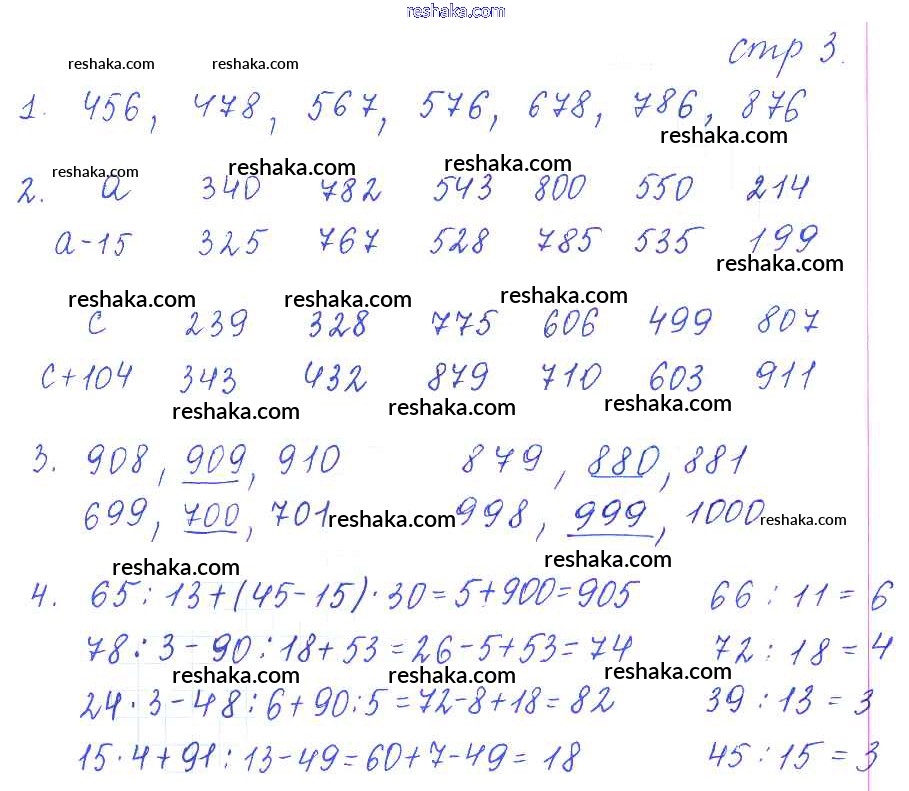 reshaka.com
стр 3.
reshaka.com reshaka.com
1. 456, 478, 567, 576, 678, 786, 876
reshaka.com
reshaka.com reshaka.com reshaka.com
2. a 340 782 543 800 550 214
a-15 325 767 528 785 535 199
reshaka.com
reshaka.com reshaka.com reshaka.com
c 239 328 775 606 499 807
c+104 343 432 879 710 603 911
reshaka.com reshaka.com reshaka.com
3. 908, 909, 910 879, 880, 881
699, 700, 701 reshaka.com 998, 999, 1000 reshaka.com
reshaka.com reshaka.com
4. 65:13+(45-15)·30=5+900=905 66:11=6
78:3-90:18+53=26-5+53=74 72:18=4
reshaka.com reshaka.com reshaka.com
24·3-48:6+90:5=72-8+18=82 39:13=3
15·4+91:13-49=60+7-49=18 45:15=3